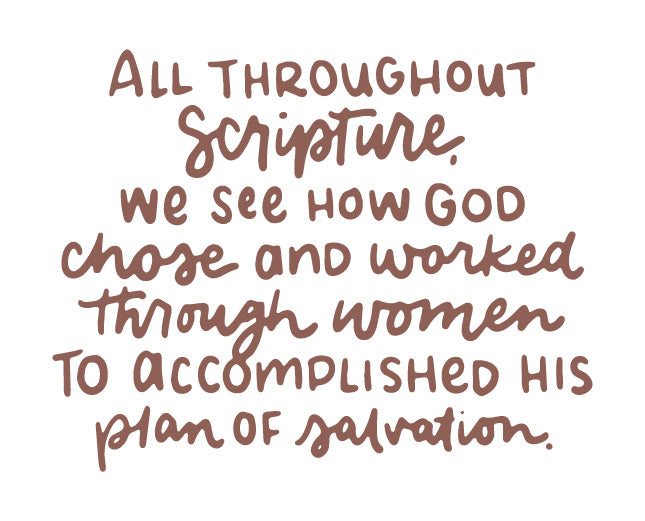 ALL THROUGHOUT
Scripture,
we see HOW GOD
chose AND worked
through women
TO ACCOMPLISHED HIS
plan OF salvation.